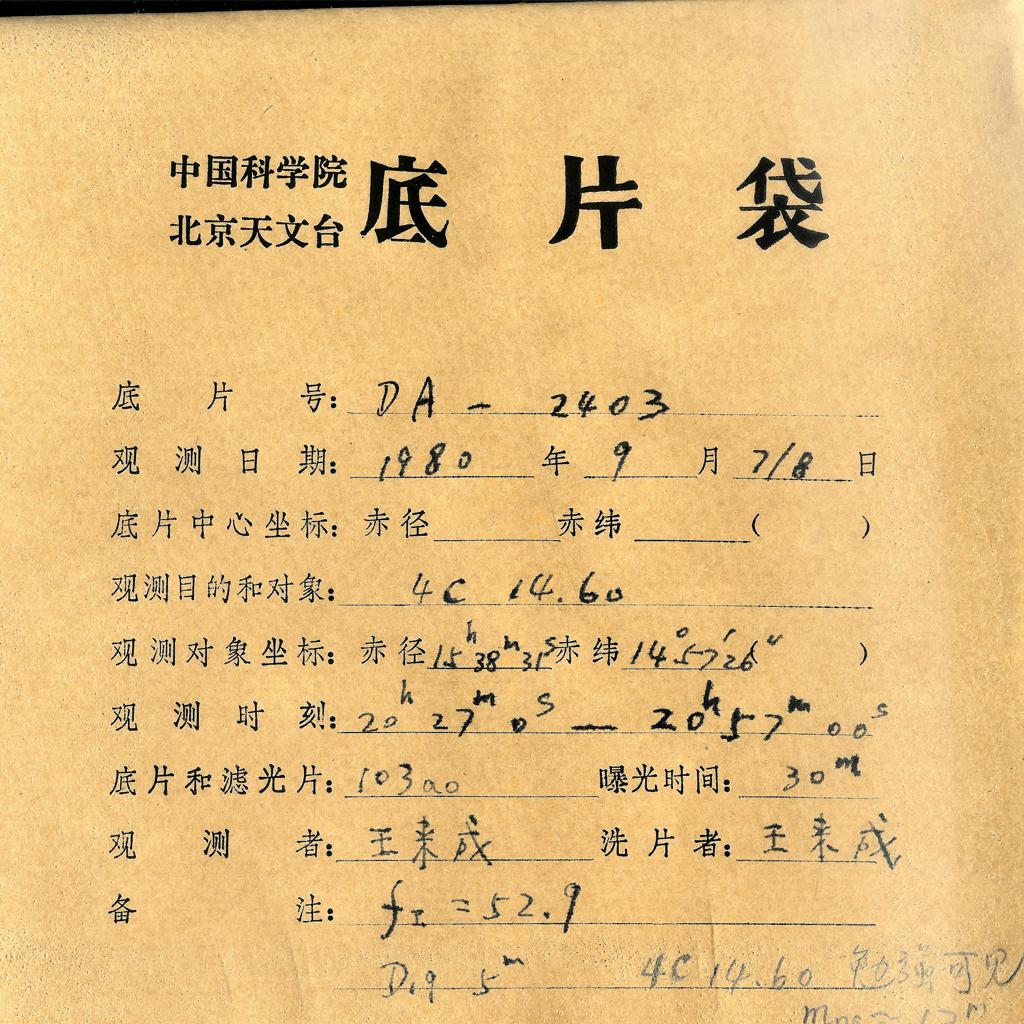 中国科学院
北京天文台 底片袋
底片号: DA - 2403
观测日期: 1980 年 9 月 7/8 日
底片中心坐标: 赤径 赤纬 ( )
观测目的和对象: 4C 14.60
观测对象坐标: 赤径 15h38m31s 赤纬 14°57′26″( )
观测时刻: 20h 27m 0s — 20h 57m 00s
底片和滤光片: 103ao 曝光时间: 30m
观测者: 王来成 洗片者: 王来成
备注: fI = 52.9
D19 5m 4C 14.60 勉强可见